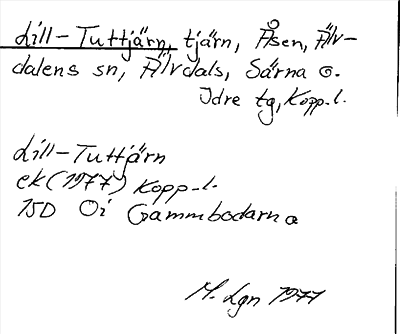 Lill-Tuttjärn, tjärn, Åsen, Älv-
dalens sn, Älvdals, Särna o.
Idre tg, Kopp.l.
Lill-Tuttjärn
ek (1977) Kopp-l.
15D 0i Gammbodarna
M. Lgn 1977